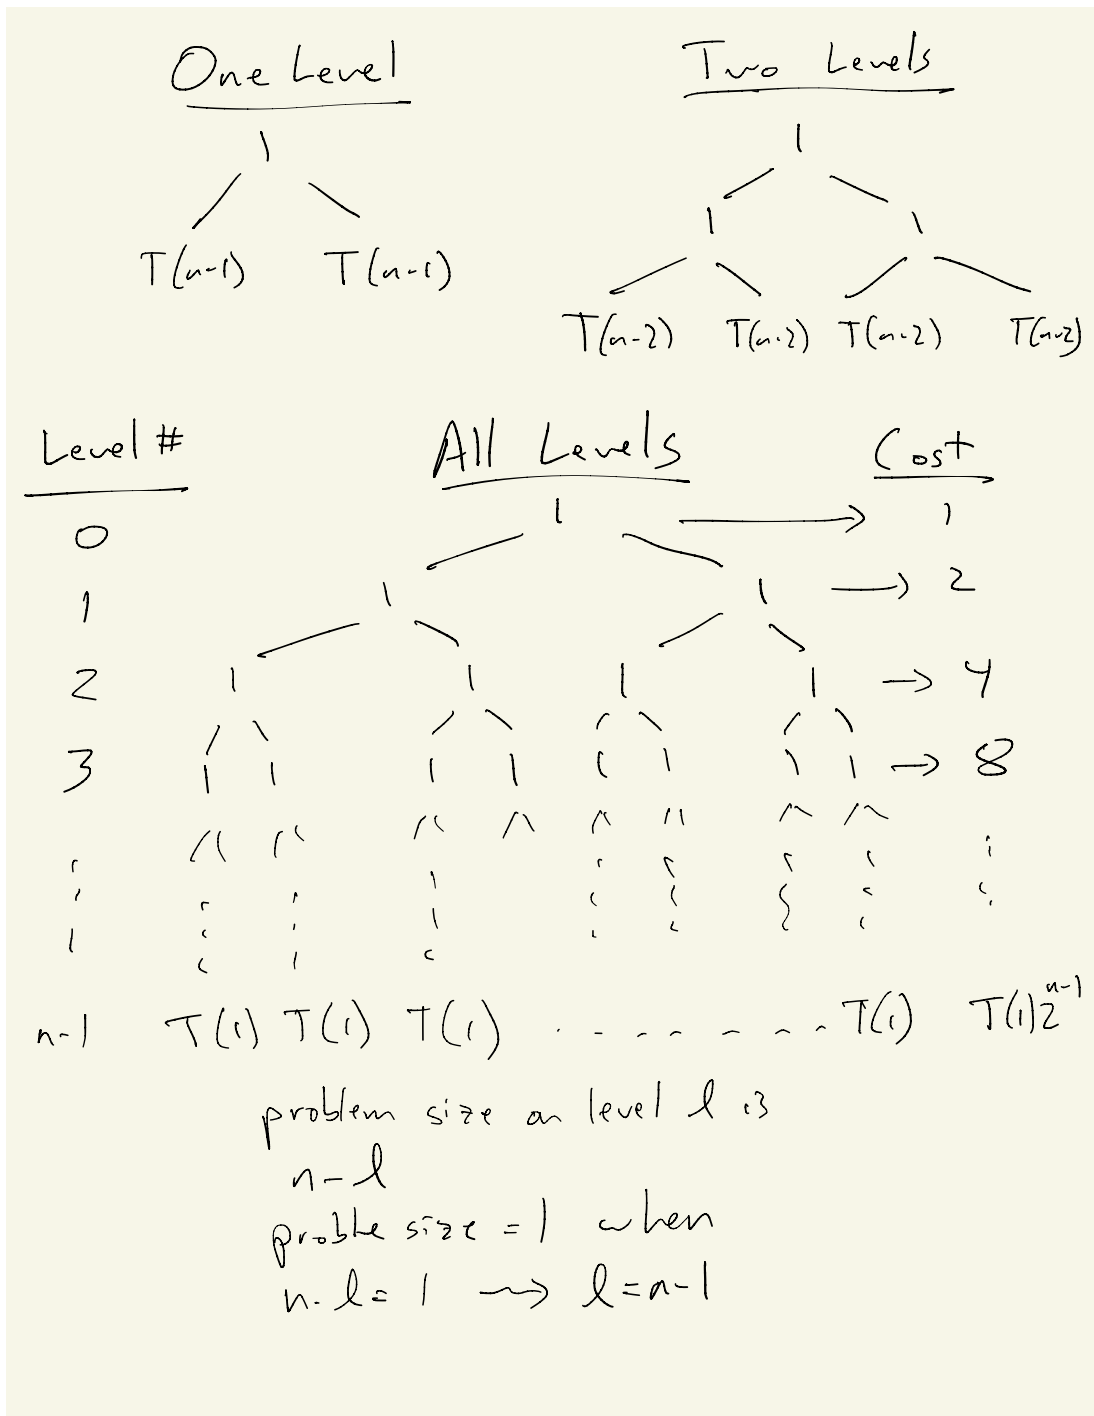 One Level
1
T(n-1) T(n-1)
Two Levels
1
1 1
T(n-2) T(n-2) T(n-2) T(n-2)
Level # All Levels Cost
0 1 → 1
1 1 1 → 2
2 1 1 1 1 → 4
3 1 1 1 1 1 1 1 1 → 8
n-1 T(1) T(1) T(1) . - - - - - . T(1) T(1)2^{n-1}
problem size on level l is
n-l
proble size = 1 when
n-l = 1 ⇝ l = n-1